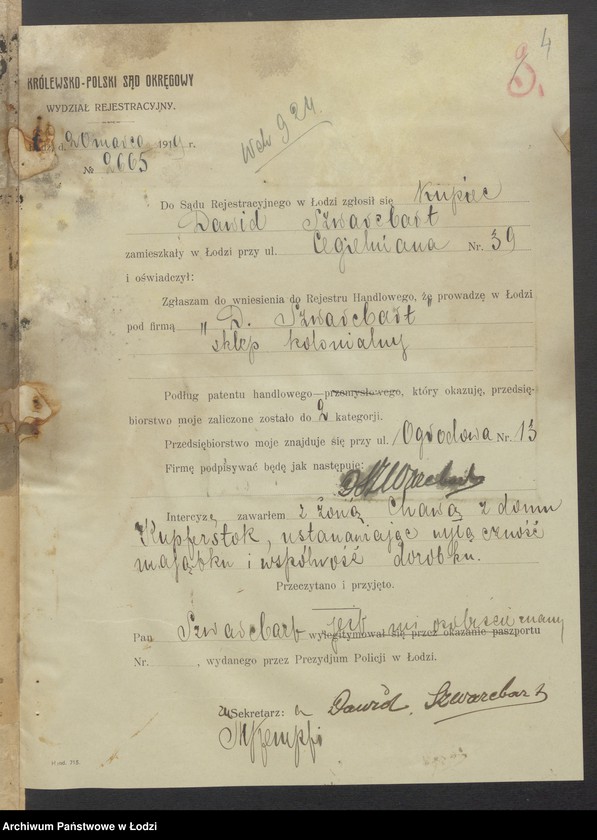 4
3.
KRÓLEWSKO-POLSKI SĄD OKRĘGOWY
WYDZIAŁ REJESTRACYJNY.
d. 20 marca 1919 r.
№ 2665
924.
Do Sądu Rejestracyjnego w Łodzi zgłosił się Kupiec
Dawid Szwarcbart
zamieszkały w Łodzi przy ul. Cegielniana Nr. 39
i oświadczył:
Zgłaszam do wniesienia do Rejestru Handlowego, że prowadzę w Łodzi
pod firmą "D. Szwarcbart"
sklep kolonialny
Podług patentu handlowego—przemysłowego, który okazuję, przedsię-
biorstwo moje zaliczone zostało do 2 kategorji.
Przedsiębiorstwo moje znajduje się przy ul. Ogrodowa Nr. 13
Firmę podpisywać będę jak następuje:
D Szwarcbart
Intercyzę zawarłem z żoną Chawą z domu
Kupferstok, ustanawiając wyłączność
majątku i wspólność dorobku.
Przeczytano i przyjęto.
Pan Szwarcbart jest mi osobiście znany
wylegitymował się przez okazanie paszportu
Nr. , wydanego przez Prezydjum Policji w Łodzi.
Sekretarz:
Dawid Szwarcbart
Archiwum Państwowe w Łodzi